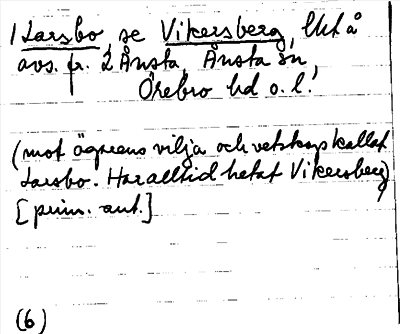 1 Larsbo, se Vikersberg, lht å
avs. fr. 2 Ånsta, Ånsta sn,
Örebro hd o. l.
(mot ägarens vilja och vetskap kallat
Larsbo. Har alltid hetat Vikersberg)
[prim. ant.]
(6)